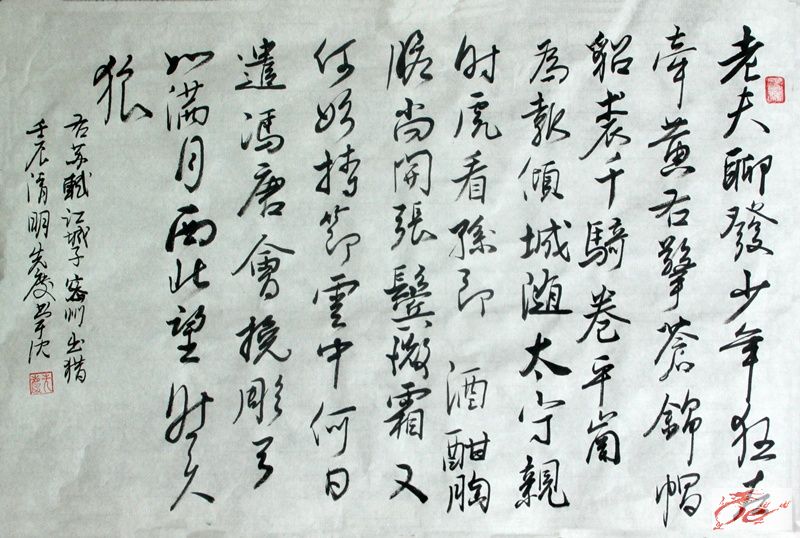 老夫聊發少年狂左
牽黄右擎蒼錦帽
貂裘千騎卷平崗
為報傾城随太守親
射虎看孫郎 酒酣胸
膽尚開張鬢微霜又
何妨持節雲中何日
遣馮唐會挽彫弓
如滿月西北望射天
狼
右苏軾江城子密州出猎
壬辰清明先慶